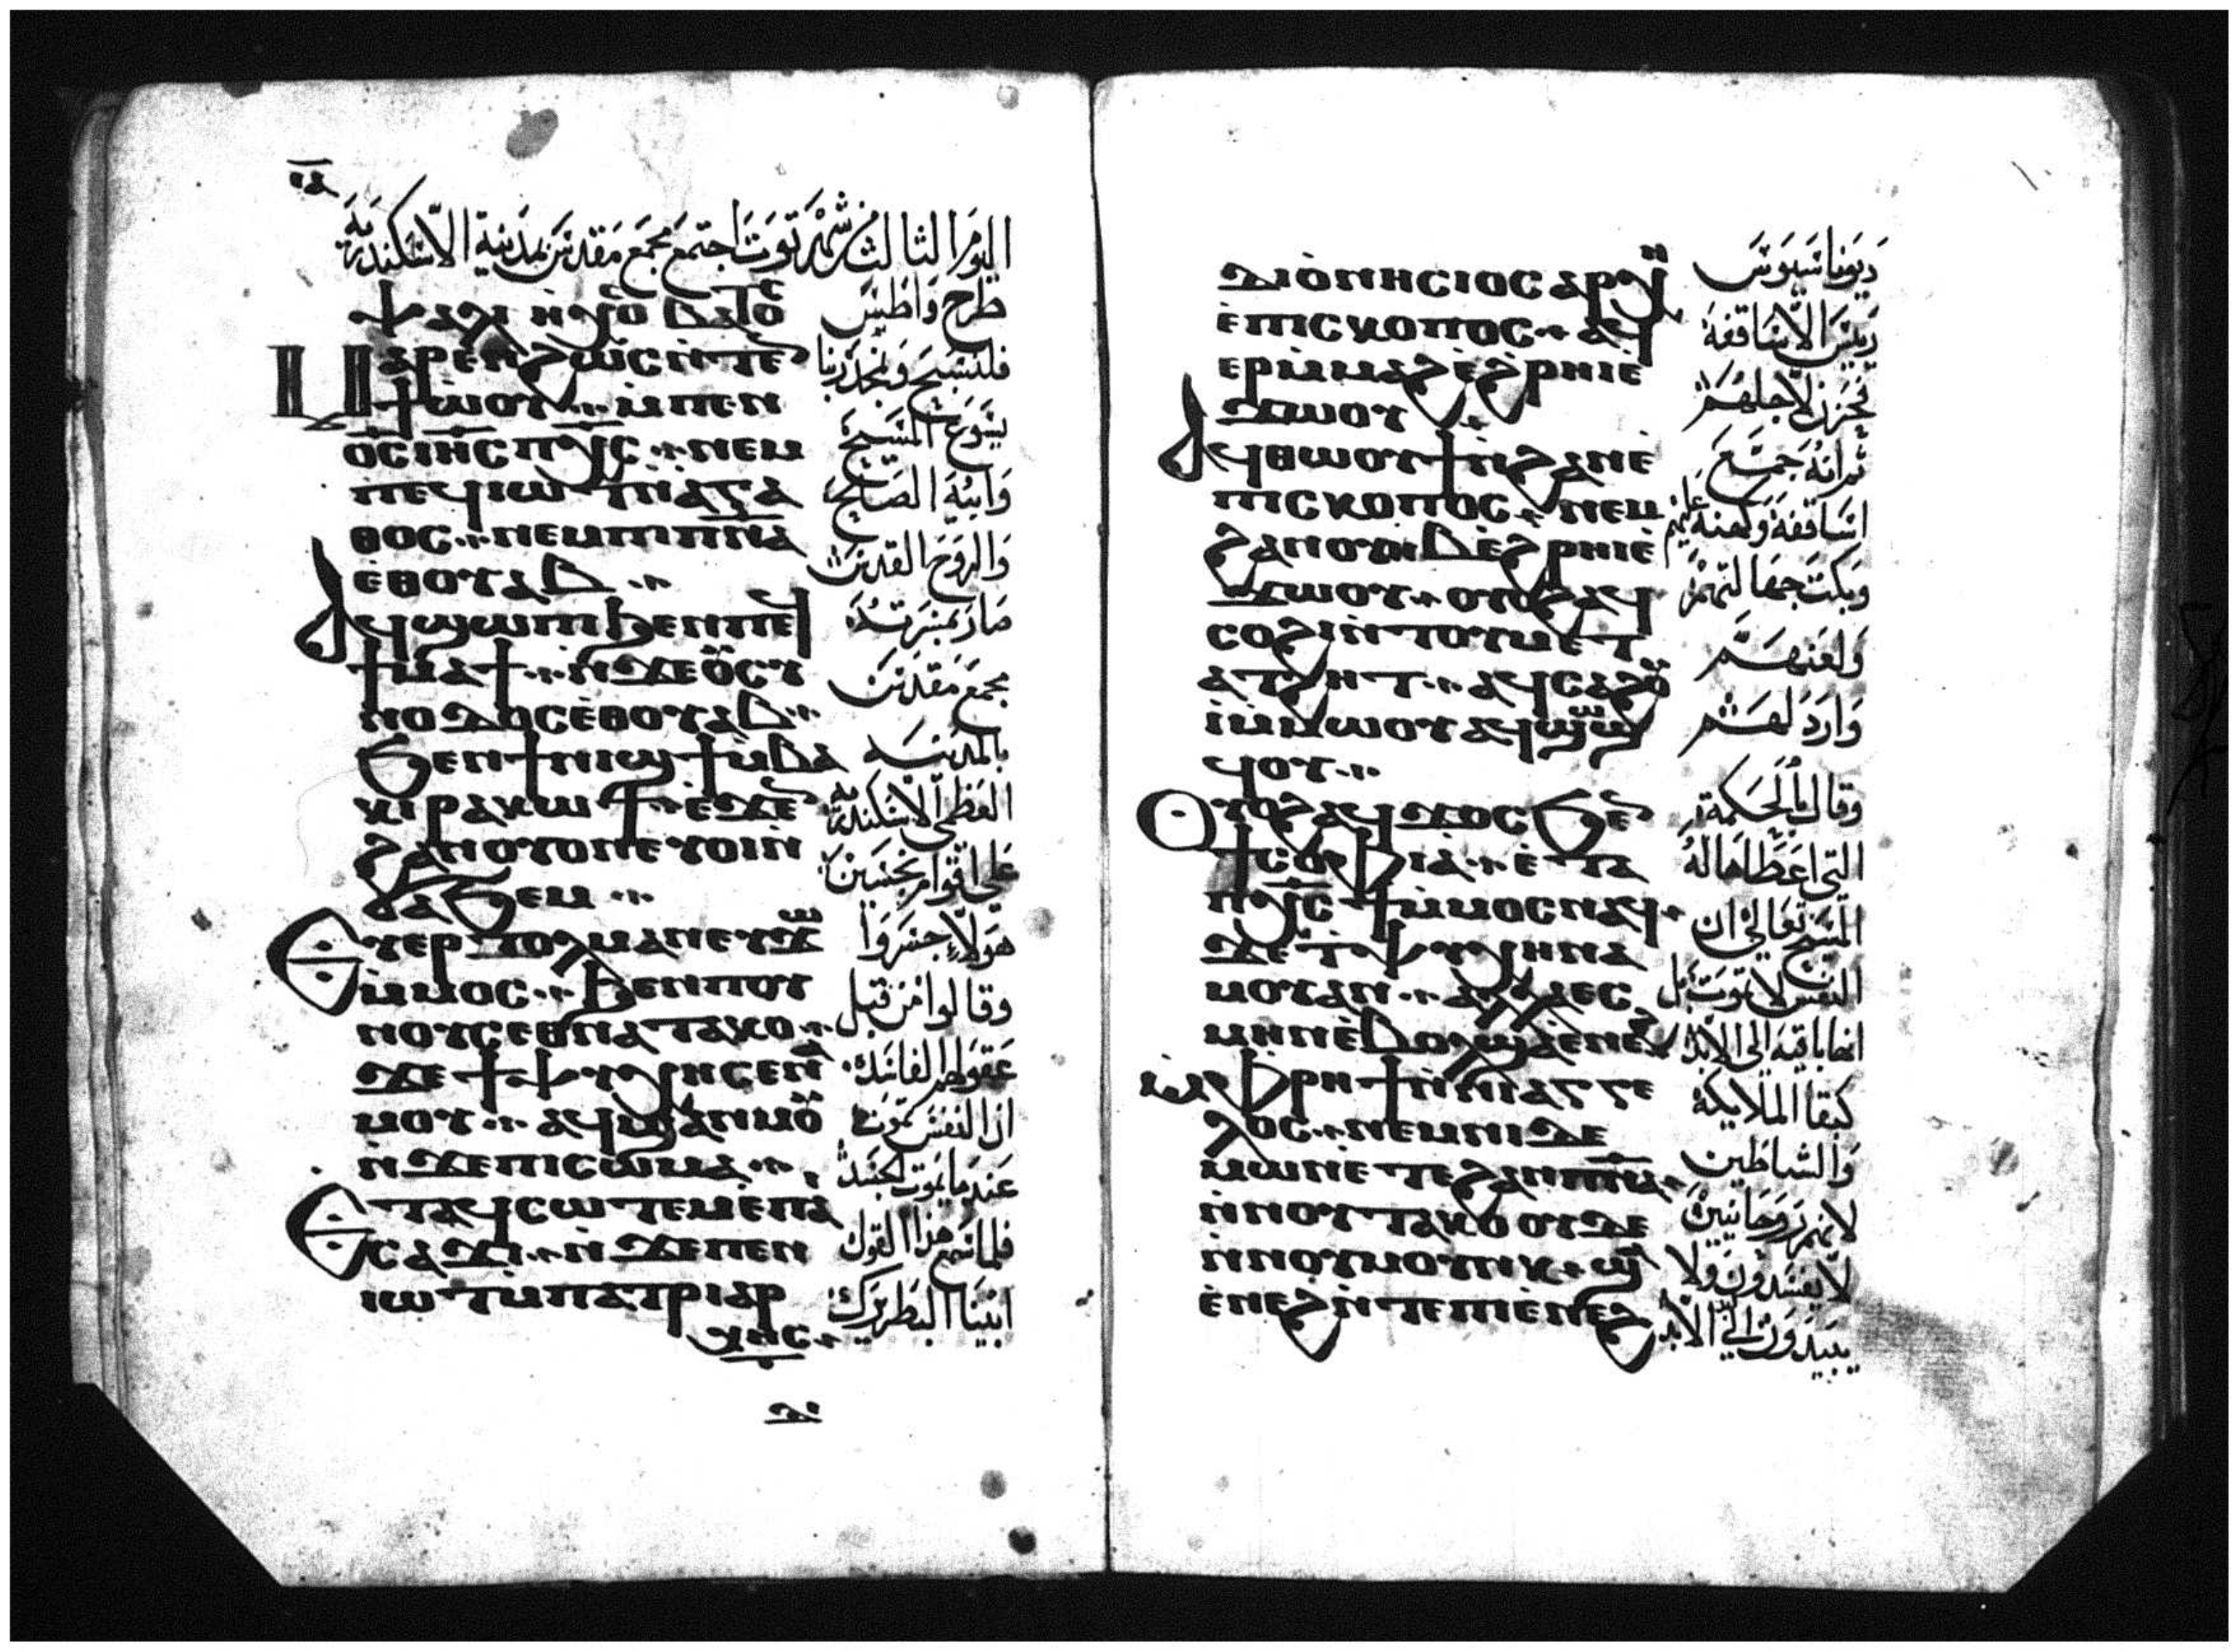 اليوم الثالث من شهر توت اجتمع مجمع مقدس بمدينة الاسكندرية
ⲯⲁⲗⲓ ⲛ̀ⲏⲭⲟ ⲃⲁⲧⲟⲥ
Ⲙⲁⲣⲉⲛϩⲱⲥ ⲛ̀ⲧⲉⲛ
ϯⲱⲟⲩ ⲙ̀ⲡⲉⲛ
ⲟ̅ⲥ̅ ⲓⲏⲥ ⲡⲭⲥ ⲛⲉⲙ
ⲡⲉϥⲓⲱⲧ ⲛ̀ⲁⲅⲁ
ⲑⲟⲥ ⲛⲉⲙ ⲡⲓⲡ̅ⲛ̅ⲁ̅
ⲉ̀ⲑⲟⲩⲁⲃ
Ⲁϥϣⲱⲡⲓ ϧⲉⲛ ⲡⲉϥ
ϯⲙⲁϯ ⲛ̀ϫⲉ ⲟⲩⲥⲩ
ⲛⲟⲇⲟⲥ ⲉ̀ⲑⲟⲩⲁⲃ
ϧⲉⲛ ϯⲛⲓϣϯ ⲙ̀ⲃⲁ
ⲕⲓ ⲣⲁⲕⲱϯ ⲉ̀ϫⲉⲛ
ϩⲁⲛⲟⲩⲟⲛ ⲉⲩⲟⲓ ⲛ̀
ϭⲁϧⲉⲙ
Ⲉⲩⲉⲣⲧⲟⲗⲙⲁⲛ ⲉⲩϫⲱ
ⲙ̀ⲙⲟⲥ ϧⲉⲛ ⲡⲟⲩ
ⲛⲟⲩⲥ ⲉⲑⲛⲁⲧⲁⲕⲟ
ϫⲉ ϯⲯⲩⲭⲏ ⲥⲉⲛⲁ
ⲙⲟⲩ ⲁϥϣⲁⲛⲙⲟⲩ
ⲛ̀ϫⲉ ⲡⲓⲥⲱⲙⲁ
Ⲉⲧⲁϥⲥⲱⲧⲉⲙ ⲉ̀ⲡⲁ
ⲥⲁϫⲓ ⲛ̀ϫⲉ ⲡⲉⲛ
ⲓⲱⲧ ⲙ̀ⲡⲁⲧⲣⲓⲁⲣ
ⲭⲏⲥ
طرح واطس
فلنسبح ونمجد ربنا
يسوع المسيح
وابيه الصالح
والروح القدس
صار بمسرته
مجمع مقدس
بالمدينه
العظمى الاسكندرية
على اقوام نجسين
هولاء جسروا
وقالوا من قبل
عقولهم الفاسده
ان النفس تموت
عند ما يموت الجسد
فلما سمع هذا القول
ابينا البطريرك
ⲇⲓⲟⲛⲏⲥⲓⲟⲥ ⲁⲣⲭⲏ
ⲉ̀ⲡⲓⲥⲕⲟⲡⲟⲥ ⲁϥ
ⲉⲣⲙ̀ⲕⲁϩ ⲉ̀ϩⲣⲏⲓ ⲉ̀
ϫⲱⲟⲩ
Ⲁϥⲑⲱⲟⲩϯ ⲛ̀ϩⲁⲛⲉ̀
ⲡⲓⲥⲕⲟⲡⲟⲥ ⲛⲉⲙ
ϩⲁⲛⲟⲩⲏⲃ ⲉ̀ϩⲣⲏⲓ ⲉ̀
ϫⲱⲟⲩ ⲟⲩⲟϩ ⲁϥ
ⲥⲟϩⲓ ⲛ̀ⲧⲟⲩⲙⲉⲧ
ⲁⲧϩⲏⲧ ⲁϥⲥⲁϩⲟⲩ
ⲓ̀ⲙ̀ⲙⲱⲟⲩ ⲁϥϣⲟϣ
ϥⲟⲩ
Ⲟⲩⲟϩ ⲁϥϫⲟⲥ ϧⲉⲛ
ϯⲥⲟⲫⲓⲁ ⲉ̀ⲧⲁ
ⲡⲭ̅ⲥ̅ ϯ ⲙ̀ⲙⲟⲥ ⲛⲁϥ
ϫⲉ ϯⲯⲩⲭⲏ ⲛⲁ
ⲙⲟⲩ ⲁⲛ ⲁⲗⲗⲁ ⲉⲥ
ⲙⲏⲛ ⲉ̀ⲃⲟⲗ ϣⲁ ⲉⲛⲉϩ
ⲙ̀ⲫⲣⲏϯ ⲛ̀ⲛⲓⲁⲅⲅⲉ
ⲗⲟⲥ ⲛⲉⲙ ⲛⲓⲇⲉ
ⲙⲱⲛ ⲉ̀ⲧⲉ ϩⲁⲛⲡ̅ⲛ̅ⲁ̅
ⲛ̀ⲛⲟⲩⲧⲁⲕⲟ ⲟⲩⲇⲉ
ⲛ̀ⲛⲟⲩⲙⲟⲩⲛⲕ ϣⲁ
ⲉ̀ⲛⲉϩ ⲛ̀ⲧⲉ ⲡⲓⲉ̀ⲛⲉϩ
ديوناسيوس
رييس الاساقفة
حزن لاجلهم
ثم انه جمع
اساقفة وكهنة عليهم
وبكت جهالتهم
ولعنهم
وارذلهم
وقال بالحكمة
التي اعطاها له
المسيح تعالى ان
النفس لا تموت بل
انها باقية الى الابد
كبقا الملايكة
والشياطين
لانهم روحانيين
لا يفسدون ولا
يبيدون الى الابد